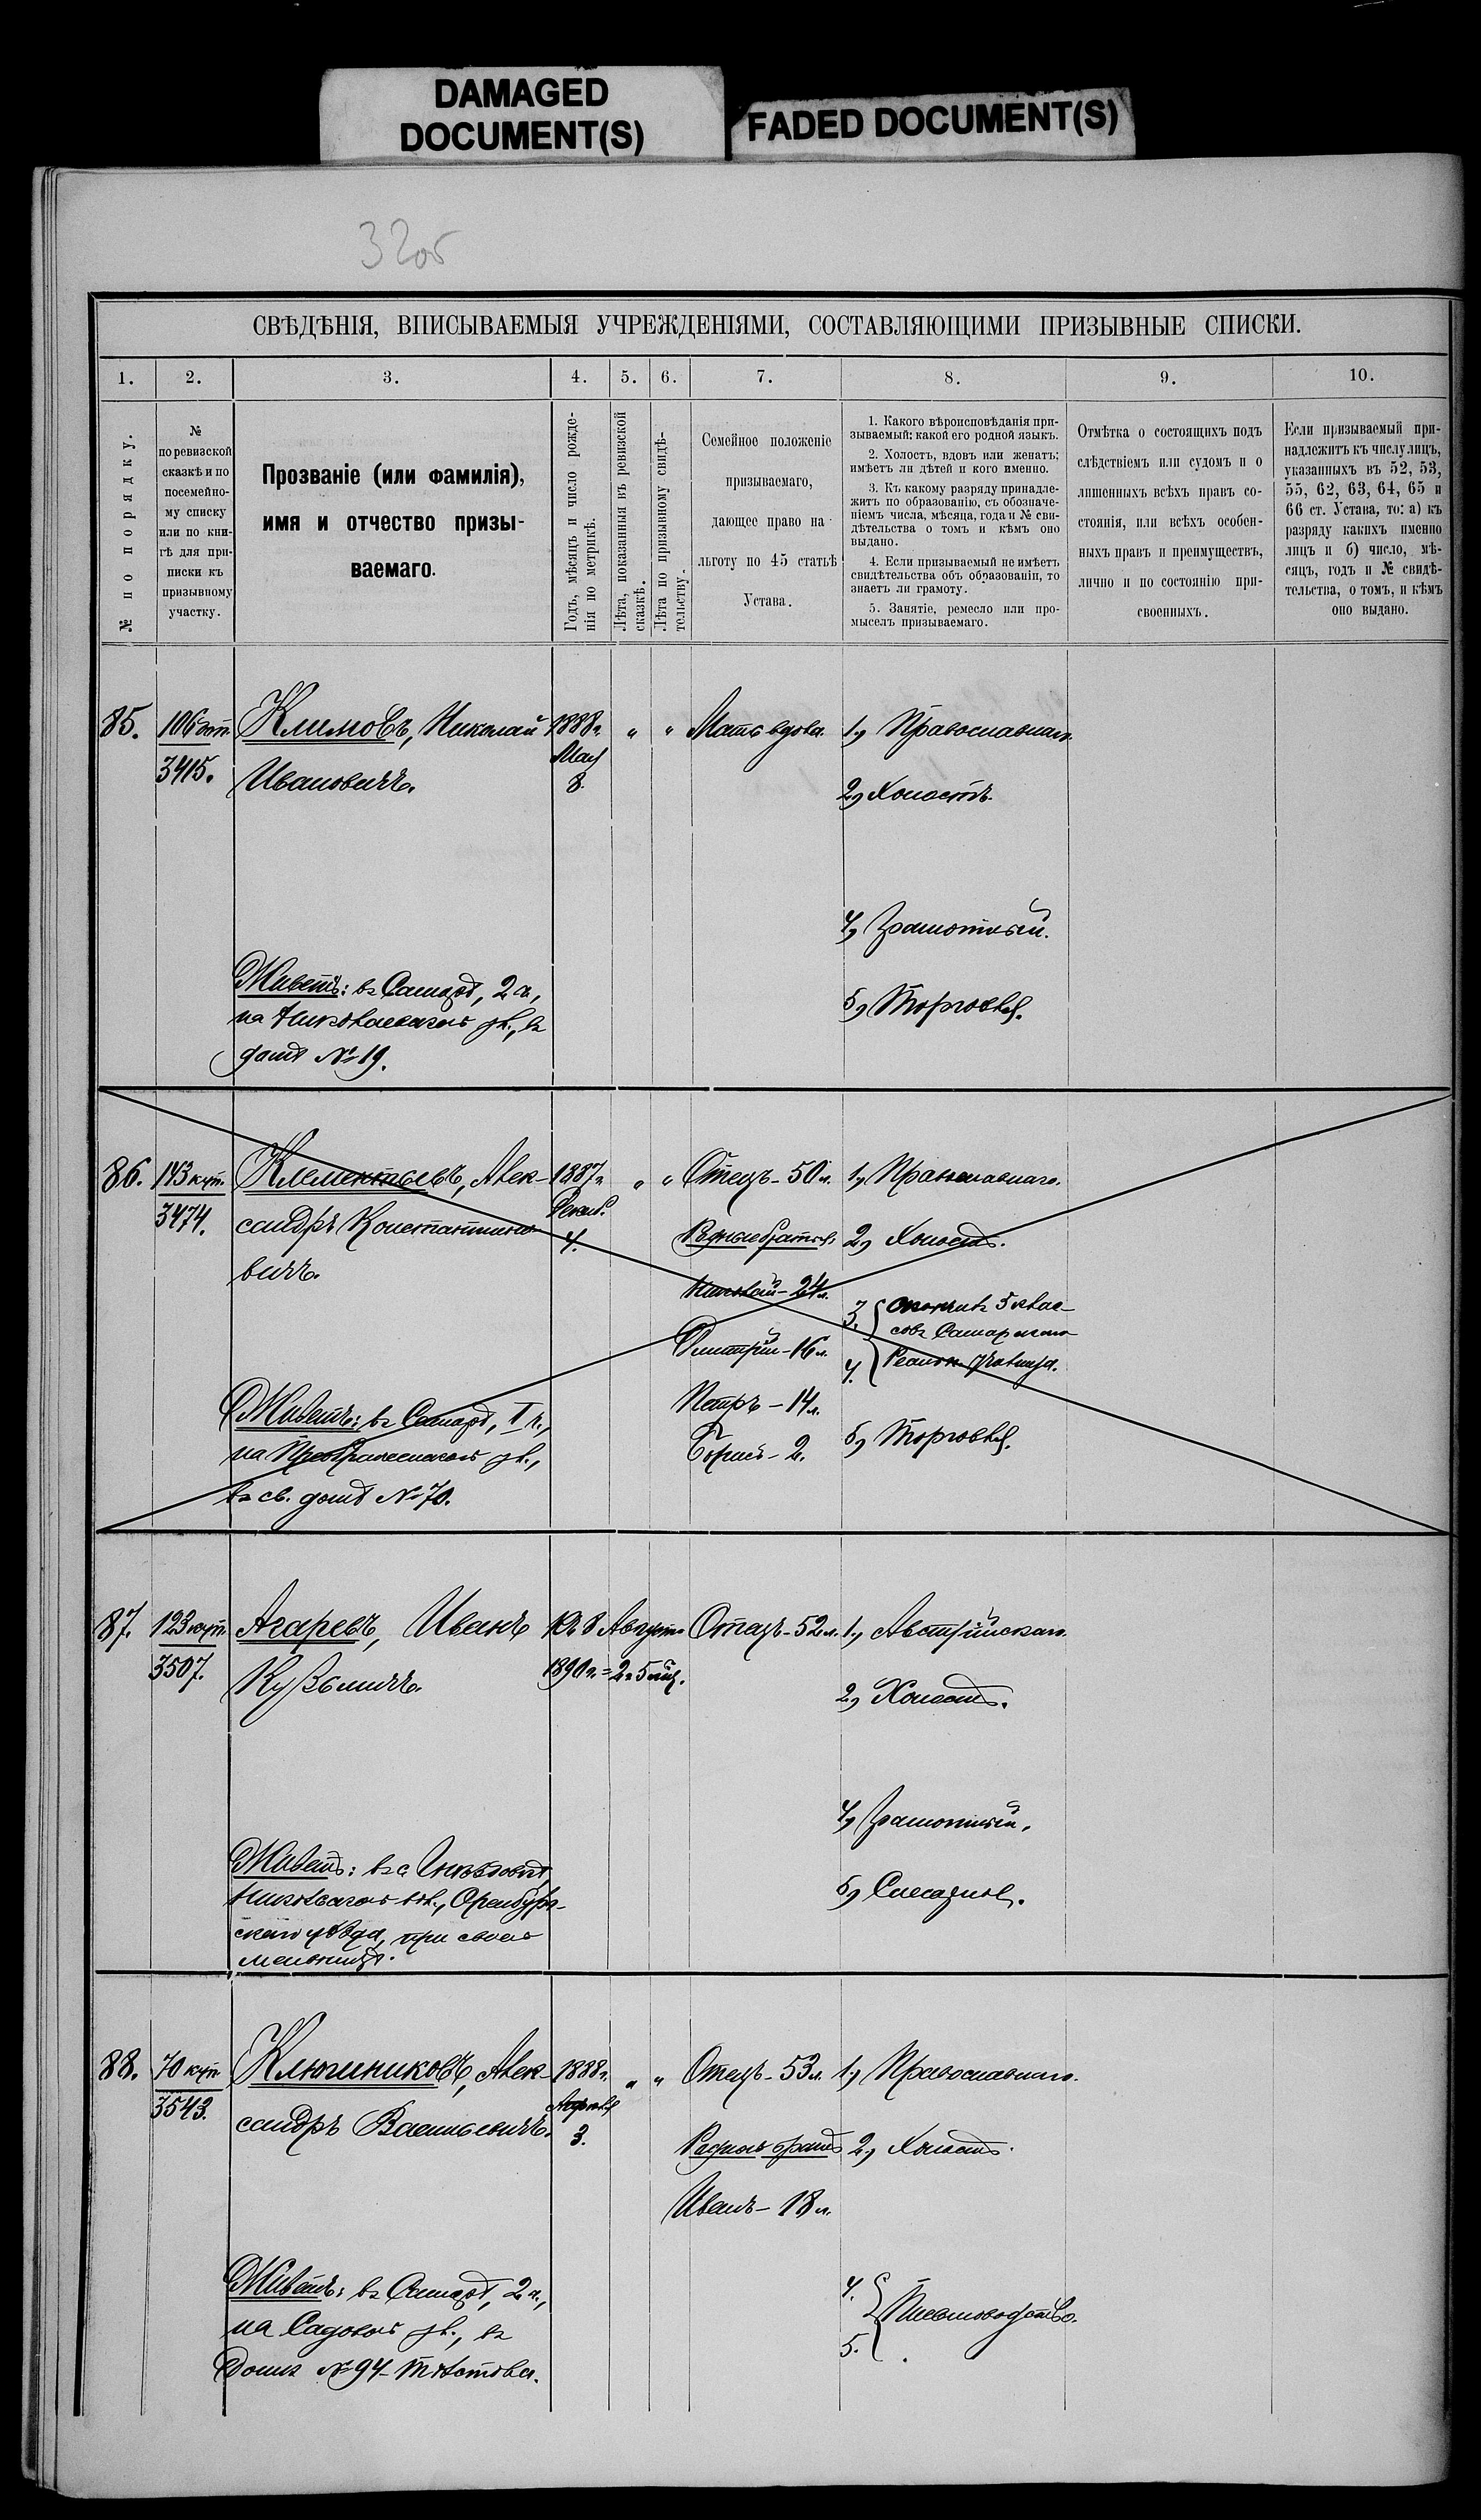 DAMAGED
DOCUMENT(S)
FADED DOCUMENT(S)
32об
СВѢДѢНІЯ, ВПИСЫВАЕМЫЯ УЧРЕЖДЕНІЯМИ, СОСТАВЛЯЮЩИМИ ПРИЗЫВНЫЕ СПИСКИ.
1. 2. 3. 4. 5. 6. 7. 8. 9. 10.
№ по порядку.
№
по ревизской
сказкѣ и по
посемейно-
му списку
или по кни-
гѣ для при-
писки къ
призывному
участку.
Прозваніе (или фамилія),
имя и отчество призы-
ваемаго.
Годъ, мѣсяцъ и число рожде-
нія по метрикѣ.
Лѣта, показанныя въ ревизской
сказкѣ.
Лѣта по призывному свидѣ-
тельству.
Семейное положеніе
призываемаго,
дающее право на
льготу по 45 статьѣ
Устава.
1. Какого вѣроисповѣданія при-
зываемый; какой его родной языкъ.
2. Холостъ, вдовъ или женатъ;
имѣетъ ли дѣтей и кого именно.
3. Къ какому разряду принадле-
житъ по образованію, съ обозначе-
ніемъ числа, мѣсяца, года и № сви-
дѣтельства о томъ и кѣмъ оно
выдано.
4. Если призываемый не имѣетъ
свидѣтельства объ образованіи, то
знаетъ ли грамоту.
5. Занятіе, ремесло или про-
мыселъ призываемаго.
Отмѣтка о состоящихъ подъ
слѣдствіемъ или судомъ и о
лишенныхъ всѣхъ правъ со-
стоянія, или всѣхъ особен-
ныхъ правъ и преимуществъ,
лично и по состоянію при-
своенныхъ.
Если призываемый при-
надлежитъ къ числу лицъ,
указанныхъ въ 52, 53,
55, 62, 63, 64, 65 и
66 ст. Устава, то: а) къ
разряду какихъ именно
лицъ и б) число, мѣ-
сяцъ, годъ и № свидѣ-
тельства, о томъ, и кѣмъ
оно выдано.
85.
3415.
Климовъ, Николай
Ивановичъ.
1888 г.
Мая
8.
" "
Мать вдова.
1, Православнаго.
2, Холостъ.
4, Грамотный.
5, Торговля.
Живетъ: въ Самарѣ, 2 ч.,
на Николаевской ул., въ
домѣ № 19.
86.
143 куп.
3474.
Клементьевъ, Алек-
сандръ Константино-
вичъ.
1887 г.
Декаб.
4.
" "
Отецъ - 50 л.
Родные братья:
Николай - 24 л.
Дмитрій - 16 л.
Петръ - 14 л.
Борисъ - 2.
1, Православнаго.
2, Холостъ.
3. Окончилъ 5 клас-
совъ Самарскаго
4. Реальн. Училища.
5, Торговля.
Живетъ: въ Самарѣ, I ч.,
на Преображенской ул.,
въ св. домѣ № 70.
87.
123 куп.
3507.
Агаревъ, Иванъ
Кузьмичъ.
Къ 8 Августа
1890 г. = 2 г. 5 мѣс.
Отецъ - 52 л.
1, Австрійскаго.
2, Холостъ.
4, Грамотный.
5,
Живетъ: въ с.
вол., Оренбург-
скаго уѣзда, при своей
мельницѣ.
88.
70 куп.
3543.
Ключниковъ, Алек-
сандръ Васильевичъ.
1888 г.
Апрѣля
3.
" "
Отецъ - 53 л.
Родной братъ
Иванъ - 18 л.
1, Православнаго.
2, Холостъ.
4.
5.
Письмоводство.
Живетъ: въ Самарѣ, 2 ч.,
на Садовой ул., въ
домѣ № 94 - Толстова.